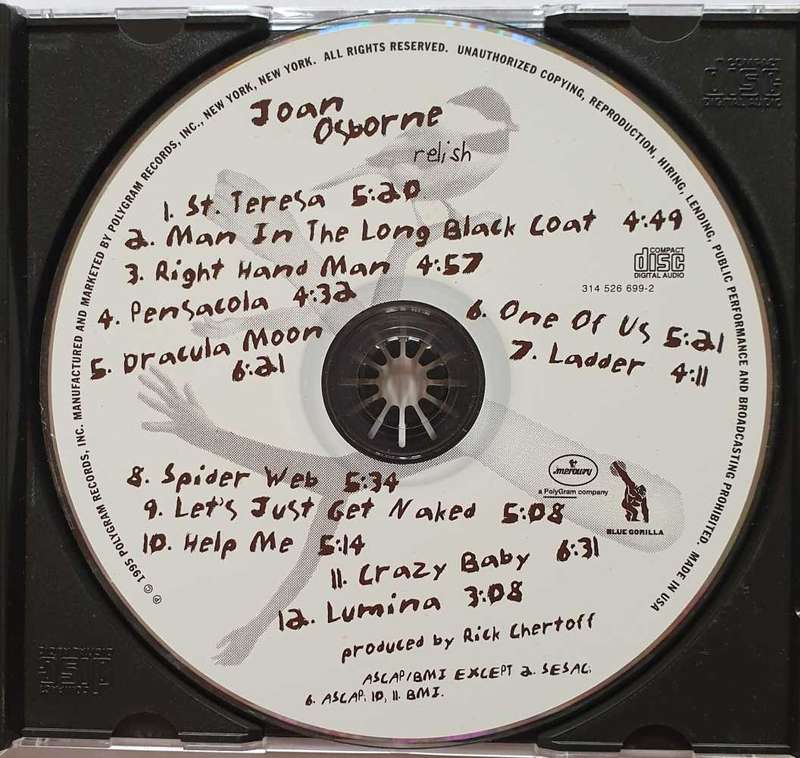 ℗ © 1995 POLYGRAM RECORDS, INC. MANUFACTURED AND MARKETED BY POLYGRAM RECORDS, INC., NEW YORK, NEW YORK. ALL RIGHTS RESERVED. UNAUTHORIZED COPYING, REPRODUCTION, HIRING, LENDING, PUBLIC PERFORMANCE AND BROADCASTING PROHIBITED. MADE IN USA
Joan
Osborne
relish
1. St. Teresa 5:20
2. Man In The Long Black Coat 4:49
3. Right Hand Man 4:57
4. Pensacola 4:32
5. Dracula Moon
6:21
COMPACT
disc
DIGITAL AUDIO
314 526 699-2
6. One Of Us 5:21
7. Ladder 4:11
8. Spider Web 5:34
9. Let's Just Get Naked 5:08
10. Help Me 5:14
11. Crazy Baby 6:31
12. Lumina 3:08
mercury
a PolyGram company
BLUE GORILLA
produced by Rick Chertoff
ASCAP/BMI EXCEPT 2. SESAC;
6. ASCAP; 10, 11. BMI.
COMPACT
disc
DIGITAL AUDIO